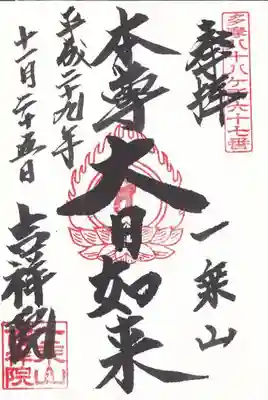 多摩八十八ヶ所六十七番
奉拝
一乗山
本尊大日如来
平成二十九年
十一月二十五日
吉祥院